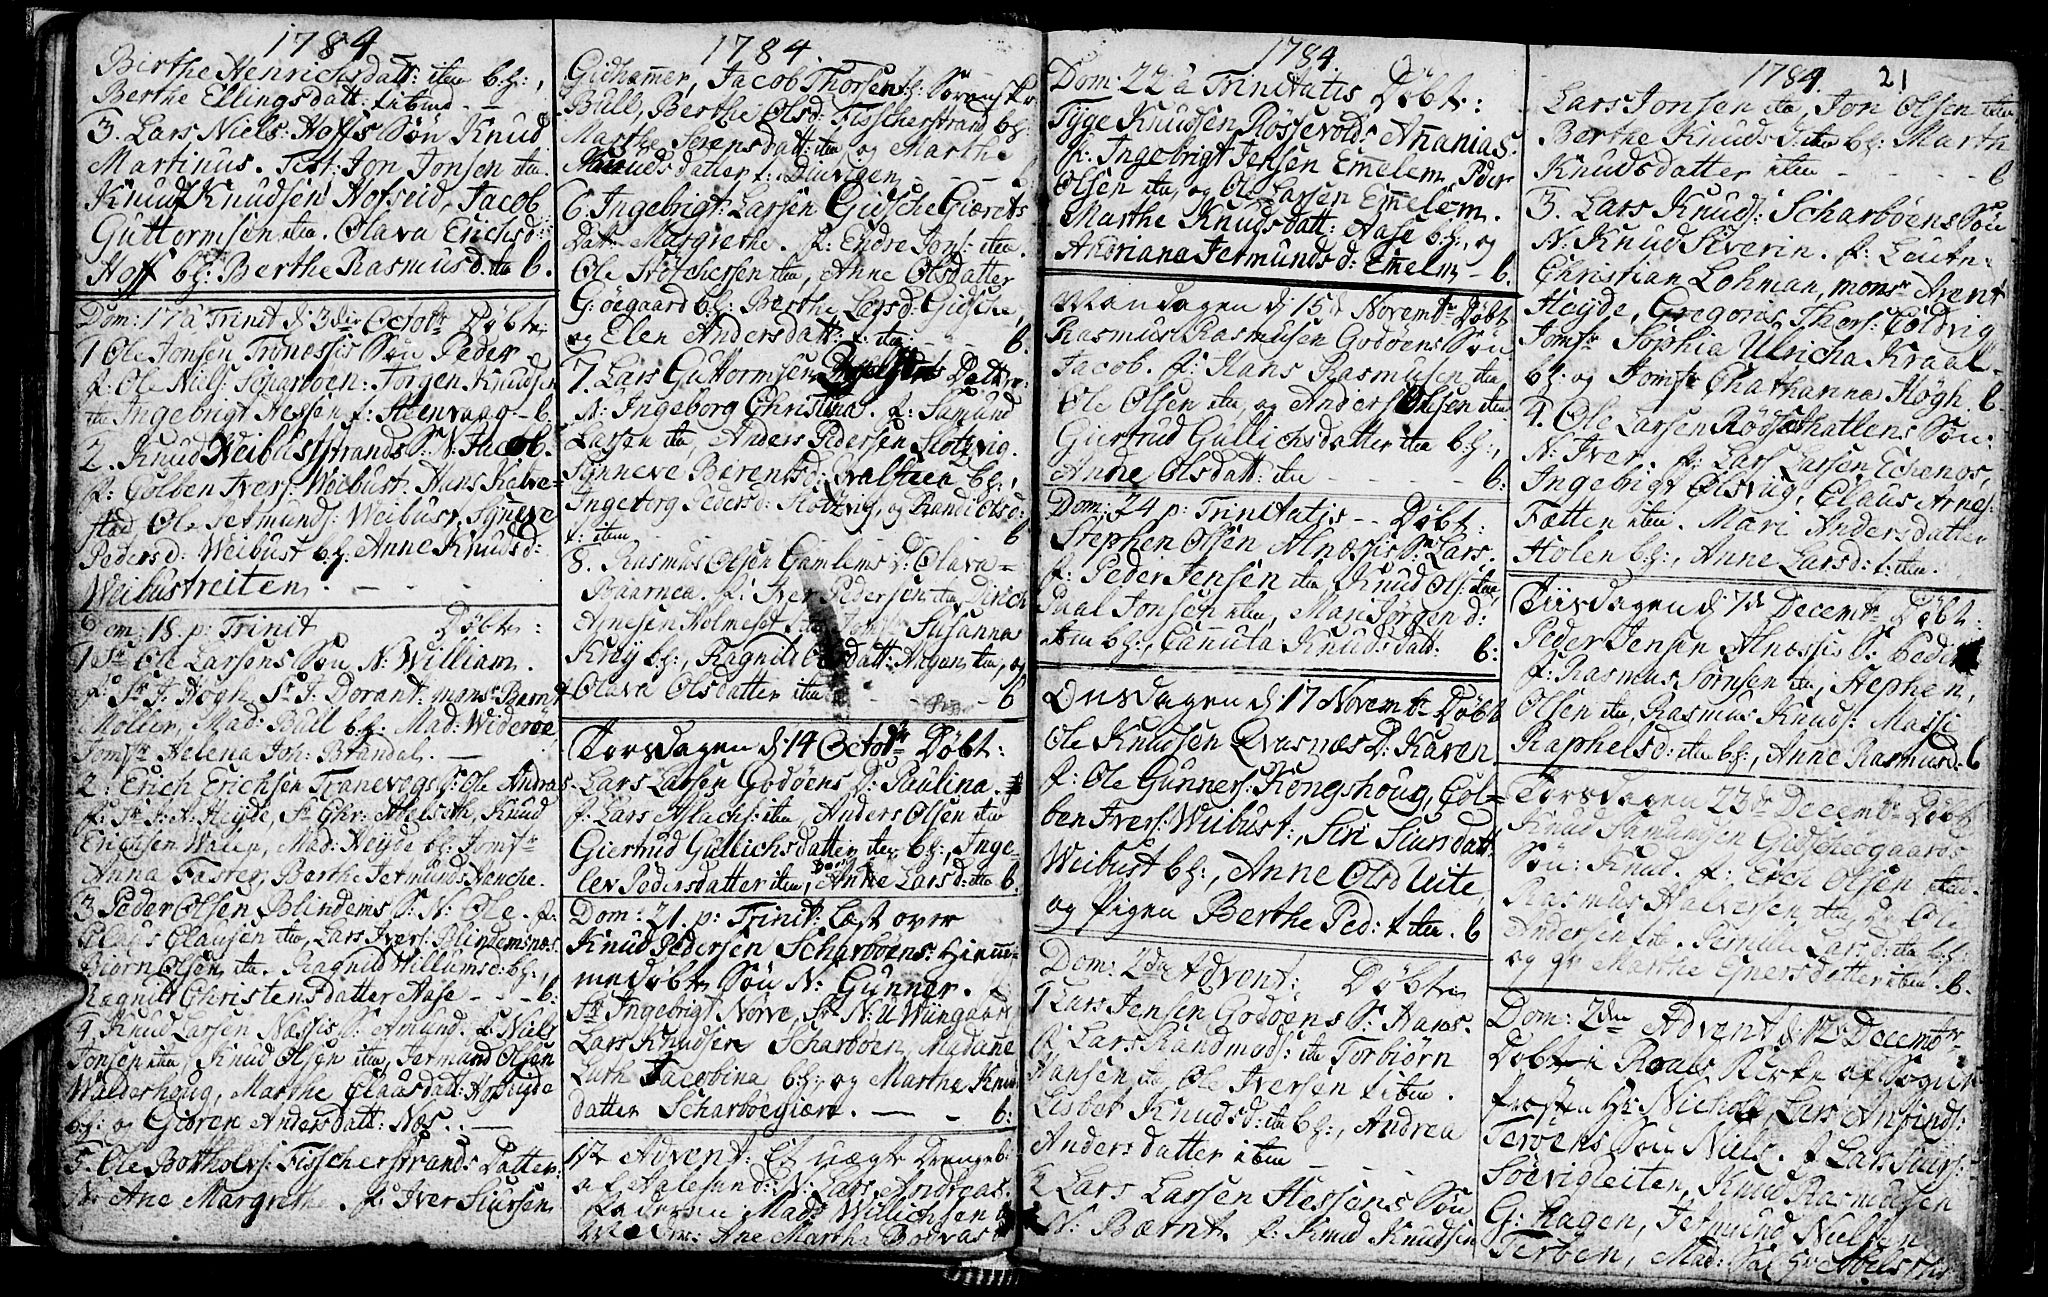 1784
Birthe Henrichsdatt: iten b:f:,
Berthe Ellingsdatt: ibm - -
3. Lars Niels: Hoffs Søn Knud
Martinus. Test: Jon Jonsen iten
Knud Knudsen Hofseid, Jacob
Guttormsen iten. Olava Erichsd:
Hoff b:f: Berthe Rasmusd. iten b.
Dom: 17 a Trinit d: 3die Octobr Døbt:
1 Ole Jonsen Trinæssis Søn Peder
f: Ole Niels: Scharboen: Jørgen Knudsen
iten Ingebrigt Hessen f: Steenvaag - b
2. Knud Weibustrands S: N: Jacob.
f: Colben Ivers: Weibust: Hans Kalve-
stad Ole Jetmunds: Weibust. Synneve
Pedersd: Weibust b:f: Anne Knudsd:
Weibustreiten. - - -
Dom: 18. p: Trinit Døbt:
1 Sr Ole Larsens Søn N: William.
f: Sr J. Høgh Sr J. Dorant: monsr Bernt
Moller, Mad: Bull b:f: Mad: Widerøe,
Jomfr Helena Joh: Brandal. -
2. Erich Erichsen Tranevogs S: Ole Andreas.
f: Sr J: A: Heyde, Sr Chr: Abelseth, Knud
Erichsen Walen, Mad: Heyde b:f: Jomfr
Anna Fasrer, Berthe Jetmunds Hanche.
3 Peder Olsen Blindems S: N: Ole. f:
Claus Clausen iten, Lars Ivers: Blindemsnæs
Biørn Olsen iten. Ragnild Willumsd: b:f:,
Ragnild Christensdatter Aase - - - b:
4 Knud Larsen Næssis S: Amund. f: Niels
Jonsen iten, Knud Olsen iten, Jetmund Olsen
Walderhoug, Marthe Clausdatt: Hofseide
b:f: og Giøren Andersdatt: Næs. -
5. Ole Botholvs: Fisscherstrands Datter:
N: Ane Margrethe. f: Iver Siursen
1784.
Gidhammer, Jacob Thorsen
Bull, Berthe Olsd: Fisscherstrand b:f:
Marthe Sørensdatt: iten og Marthe
Knudsdatter f: Duevigen - - -
6. Ingebrigt: Larsen Gidsche Giærets
Datt: Margrethe. f: Endre Jons: iten.
Ole iten, Anne Olsdatter
G:øegaard b:f: Berthe Larsd: Gidsche,
og Elen Andersdatt: f: iten - - b.
7. Lars Guttormsen Datter:
N: Ingeborg Christina. f: Samund
Larsen iten, Anders Pedersen Slotzvig.
Synneve Berentsd: Qvalsteen b:f:,
Ingeborg Pedersd: Slotzvig, og Randi Olsd:
f: iten b
8. Rasmus Olsen Gamlems D: Olava -
f: Iver Pedersen iten Dirich
Arnesen Holmeset Susanna
Krey b:f:, Ragnild datt: Hagen iten, og
Olava Olsdatter iten - - - b
Torsdagen d: 14 Octobr Døbt:
Lars Larsen Godøens D: Paulina.
f: Lars iten, Anders Olsen iten
Giertrud Gullichsdatter iten b:f:, Inge-
lev Pedersdatter iten, Anne Larsd: iten b
Dom: 21. p: Trinit: Læst over
Knud Pedersen Scharboens: Hiemme-
medøbt Søn N: Gunner.
Sr Ingebrigt Nørve, Sr N: U Wungaard
Lars Knudsen Scharboen, Madame
Luth Jacobina b:f: og Marthe Knuds
datter Scharbøegiært. - - b:
1te Advent: Et uægte Drengeb:
af Aalesund: N: Lars Andreas.
Mads Willichsen
Ane Marthe
1784.
Dom: 22 a Trinitatis Døbt:
Tyge Knudsen Røssevold: Ananias.
f: Ingebrigt Jensen Emelem Peder
Olsen iten, og Ole Larsen Emelem.
Marthe Knudsdatt: Aase b:f:, og
Andriana Jetmundsd: Emelm - b.
Mandagen d: 15d Novembr Døbt
Rasmus Rasmusen Godøens Søn
Jacob. f: Hans Rasmusen iten
Ole Olsen iten og Anders Olsen iten
Giertrud Gullichsdatter iten b:f:,
Anne Olsdatt: iten - - - - b:
Dom: 24 p: Trinitatis - - Døbt:
Stephen Olsen Alnæssis Sn Lars.
f: Peder Jensen iten Knud Ols: iten,
Paal Jonsen iten, Mari Jørgensd:
iten b:f:, Canuta Knudsdatt: b:
Onsdagen d: 17 Novembr Døbt
Ole Knudsen Qvasnæs D: Karen
f: Ole Gunners: Kongshoug, Col-
ben Ivers: Weibust:, Siri Siursdatt:
Weibust b:f:, Anne Olsd Ueite,
og Pigen Berthe Ped: f iten. b
Dom: 2den Advent: Døbt
1 Lars Jensen Godøens S: Hans.
f: Lars Randmods: iten Torbiørn
Hansen iten, Ole Iversen f iten.
Lisbet Knudsd: iten b:f:, Andrea
Andersdatter ibm - - -
2 Lars Larsen Hessens Søn
N: Bærnt. f: Knud Knudsen
1784 21
Lars Jonsen iten, Jon Olsen iten
Berthe Knudsd: iten b:f: Marth
Knudsdatter iten - - - - b
3. Lars Knuds: Scharbøens Søn
N: Knud Siverin. f: Leutn:
Christian Lohman, monsr Arent
Heyde, Gregoris Thors: Coldvig
Jomfr Sophia Ulricha Kraal-
b:f: og Jomfr Chatharina Høgh. b
4. Ole Larsen Rødseschatlens Søn:
N: Iver. f: Lars Larsen Echengs,
Ingebrigt Olsvug, Claus Arnes:
Fætten iten. Mari Andersdatter
Holen b:f:, Anne Larsd: f: iten.
Tiisdagen d: 7de Decembr Døbt:
Peder Jensen Alnæssis S: Peder
f: Rasmus Jørnsen iten, Stephen,
Olsen iten, Rasmus Knuds: Massi
Raphelsd: iten b:f:, Anne Rasmusd: b
Torsdagen 23de Decembr Døbt
Knud Samunsen Gidscheogaards
Søn: Knud. f: Erch Olsen iten.
Rasmus Halversen iten, Ole
Andersen iten. Pernille Larsd: iten b:f:
og gr Marthe Ejnersdatter iten. b.
Dom: 2den Advent d: 12te Decembr
Døbt i Roals Kirke af Sogne
præsten Hr Nicholl, Lars Amfinds:
Terøens Søn Niels. f Lars Siurs:
Søevigleiten, Knud Rasmusen
G: hagen, Jetmund Nielsen
Terøen, Mad: